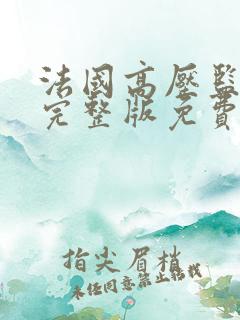 法國高壓監
完整版免費
指尖眉梢
未经同意禁止转载